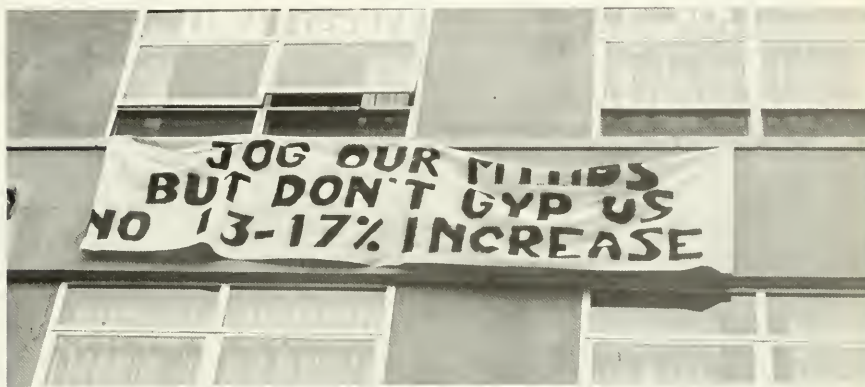 JOG OUR MINDS
BUT DON'T GYP US
NO 13-17% INCREASE